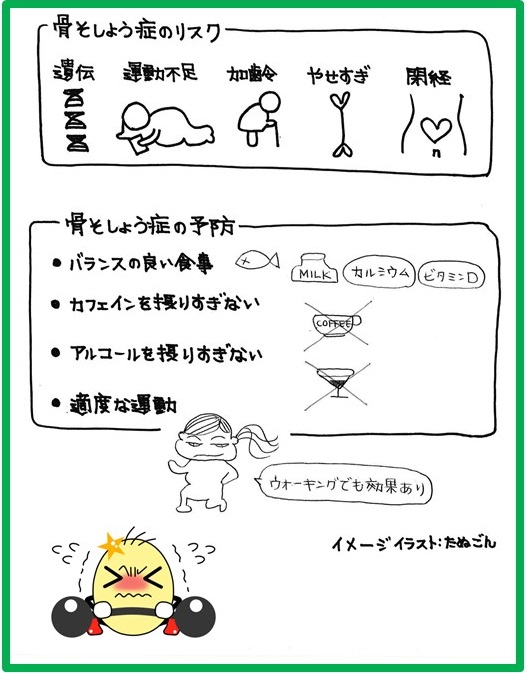 骨そしょう症のリスク
遺伝 運動不足 加齢 やせすぎ 閉経
骨そしょう症の予防
● バランスの良い食事 MILK カルシウム ビタミンD
● カフェインを摂りすぎない COFFEE
● アルコールを摂りすぎない
● 適度な運動
ウォーキングでも効果あり
イメージイラスト:たぬごん